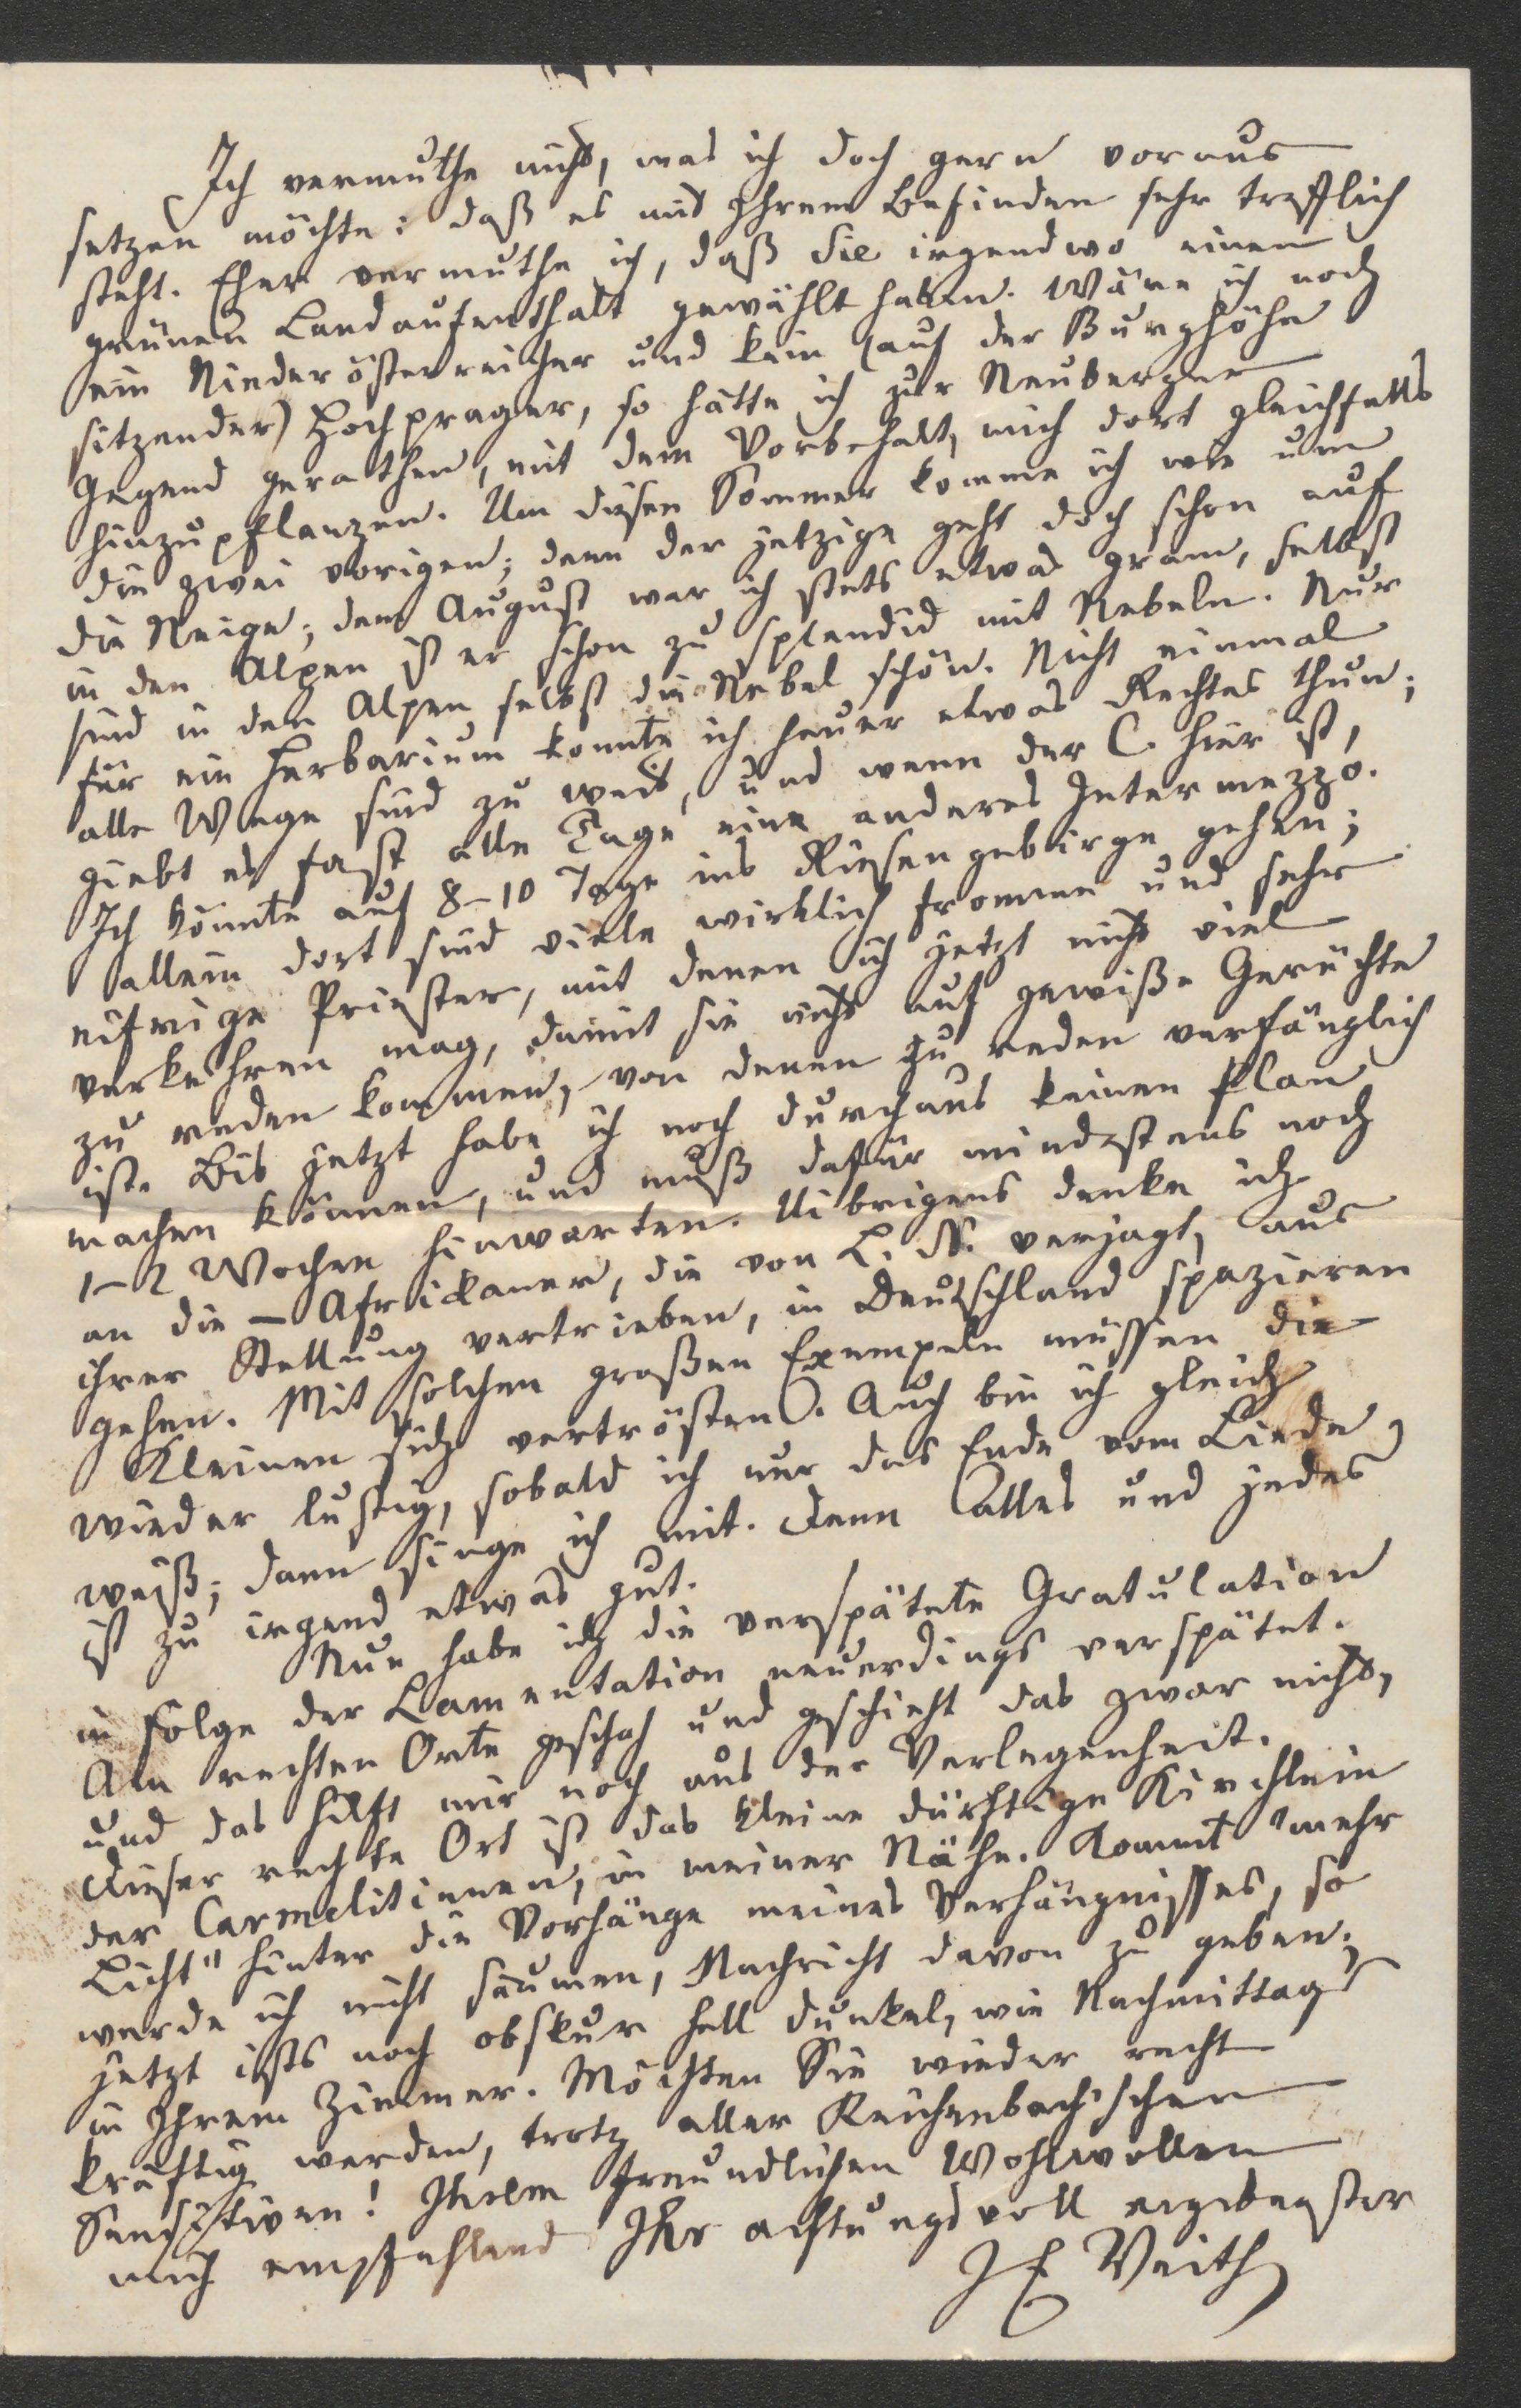 Ich vermuthe nicht, was ich doch gern voraus
setzen möchte: daß es mit Ihrem Befinden sehr trefflich
steht. Eher vermuthe ich, daß Sie irgendwo einen
grünen Landaufenthalt gewählt haben. Wäre ich noch
ein Niederösterreicher und kein (auf der Burghöhe
sitzender) Hochprager, so hätte ich zur Neuberger
Gegend gerathen, mit dem Vorbehalt, mich dort gleichfalls
hinzupflanzen. Um diesen Sommer komme ich wie um
die zwei vorigen; denn der jetzige geht doch schon auf
die Neige; dem August war ich stets etwas gram, selbst
in den Alpen ist er schon zu splendid mit Nebeln. Nur
sind in den Alpen selbst die Nebel schön. Nicht einmal
für ein Herbarium konnte ich heuer etwas Rechtes thun;
alle Wege sind zu weit, und wenn der C. hier ist,
giebt es fast alle Tage ein anderes Intermezzo.
Ich könnte auf 8–10 Tage ins Riesengebirge gehen;
allein dort sind viele wirklich fromme und sehr
eifrige Priester, mit denen ich jetzt nicht viel
verkehren mag, damit sie nicht auf gewiße Gerüchte
zu reden kommen, von denen zu reden verfänglich
ist. Bis jetzt habe ich noch durchaus keinen Plan
machen können, und muß dafür mindestens noch
1–2 Wochen hinwarten. Uibrigens denke ich
an die – Africaner, die von L. N. verjagt, aus
ihrer Stellung vertrieben, in Deutschland spazieren
gehen. Mit solchen großen Exempeln müssen die
Kleinen sich vertrösten. Auch bin ich gleich
wieder lustig, sobald ich nur das Ende vom Liede
weiß; dann singe ich mit. Denn alles und jedes
ist zu irgend etwas gut.
Nun habe ich die verspätete Gratulation
in Folge der Lamentation neuerdings verspätet.
Am rechten Orte geschah und geschieht das zwar nicht,
und das hilft mir noch aus der Verlegenheit.
Dieser rechte Ort ist das kleine dürftige Kirchlein
der Carmelitinnen, in meiner Nähe. Kommt "mehr
Licht" hinter die Vorhänge meines Verhängnisses, so
werde ich nicht säumen, Nachricht davon zu geben;
jetzt ists noch obskur hell dunkel, wie Nachmittags
in Ihrem Zimmer. Möchten Sie wieder recht
kräftig werden, trotz aller Reichenbach'schen
Sensitiven! Ihrem freundlichen Wohlwollen
mich empfehlend Ihr achtungsvoll ergebenster
J E Veith